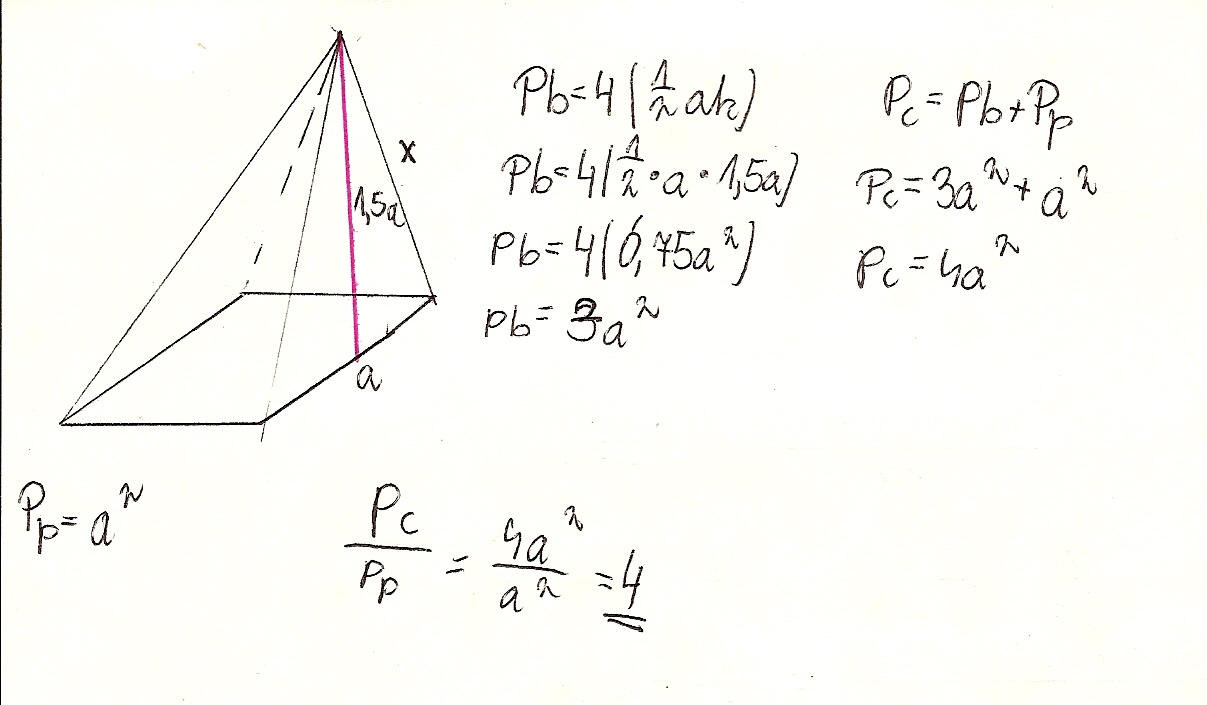 x
1,5a
a
Pb=4(½ah)
Pb=4(½·a·1,5a)
Pb=4(0,75a²)
Pb=3a²
Pc=Pb+Pp
Pc=3a²+a²
Pc=4a²
Pp=a²
Pc/Pp=4a²/a²=4